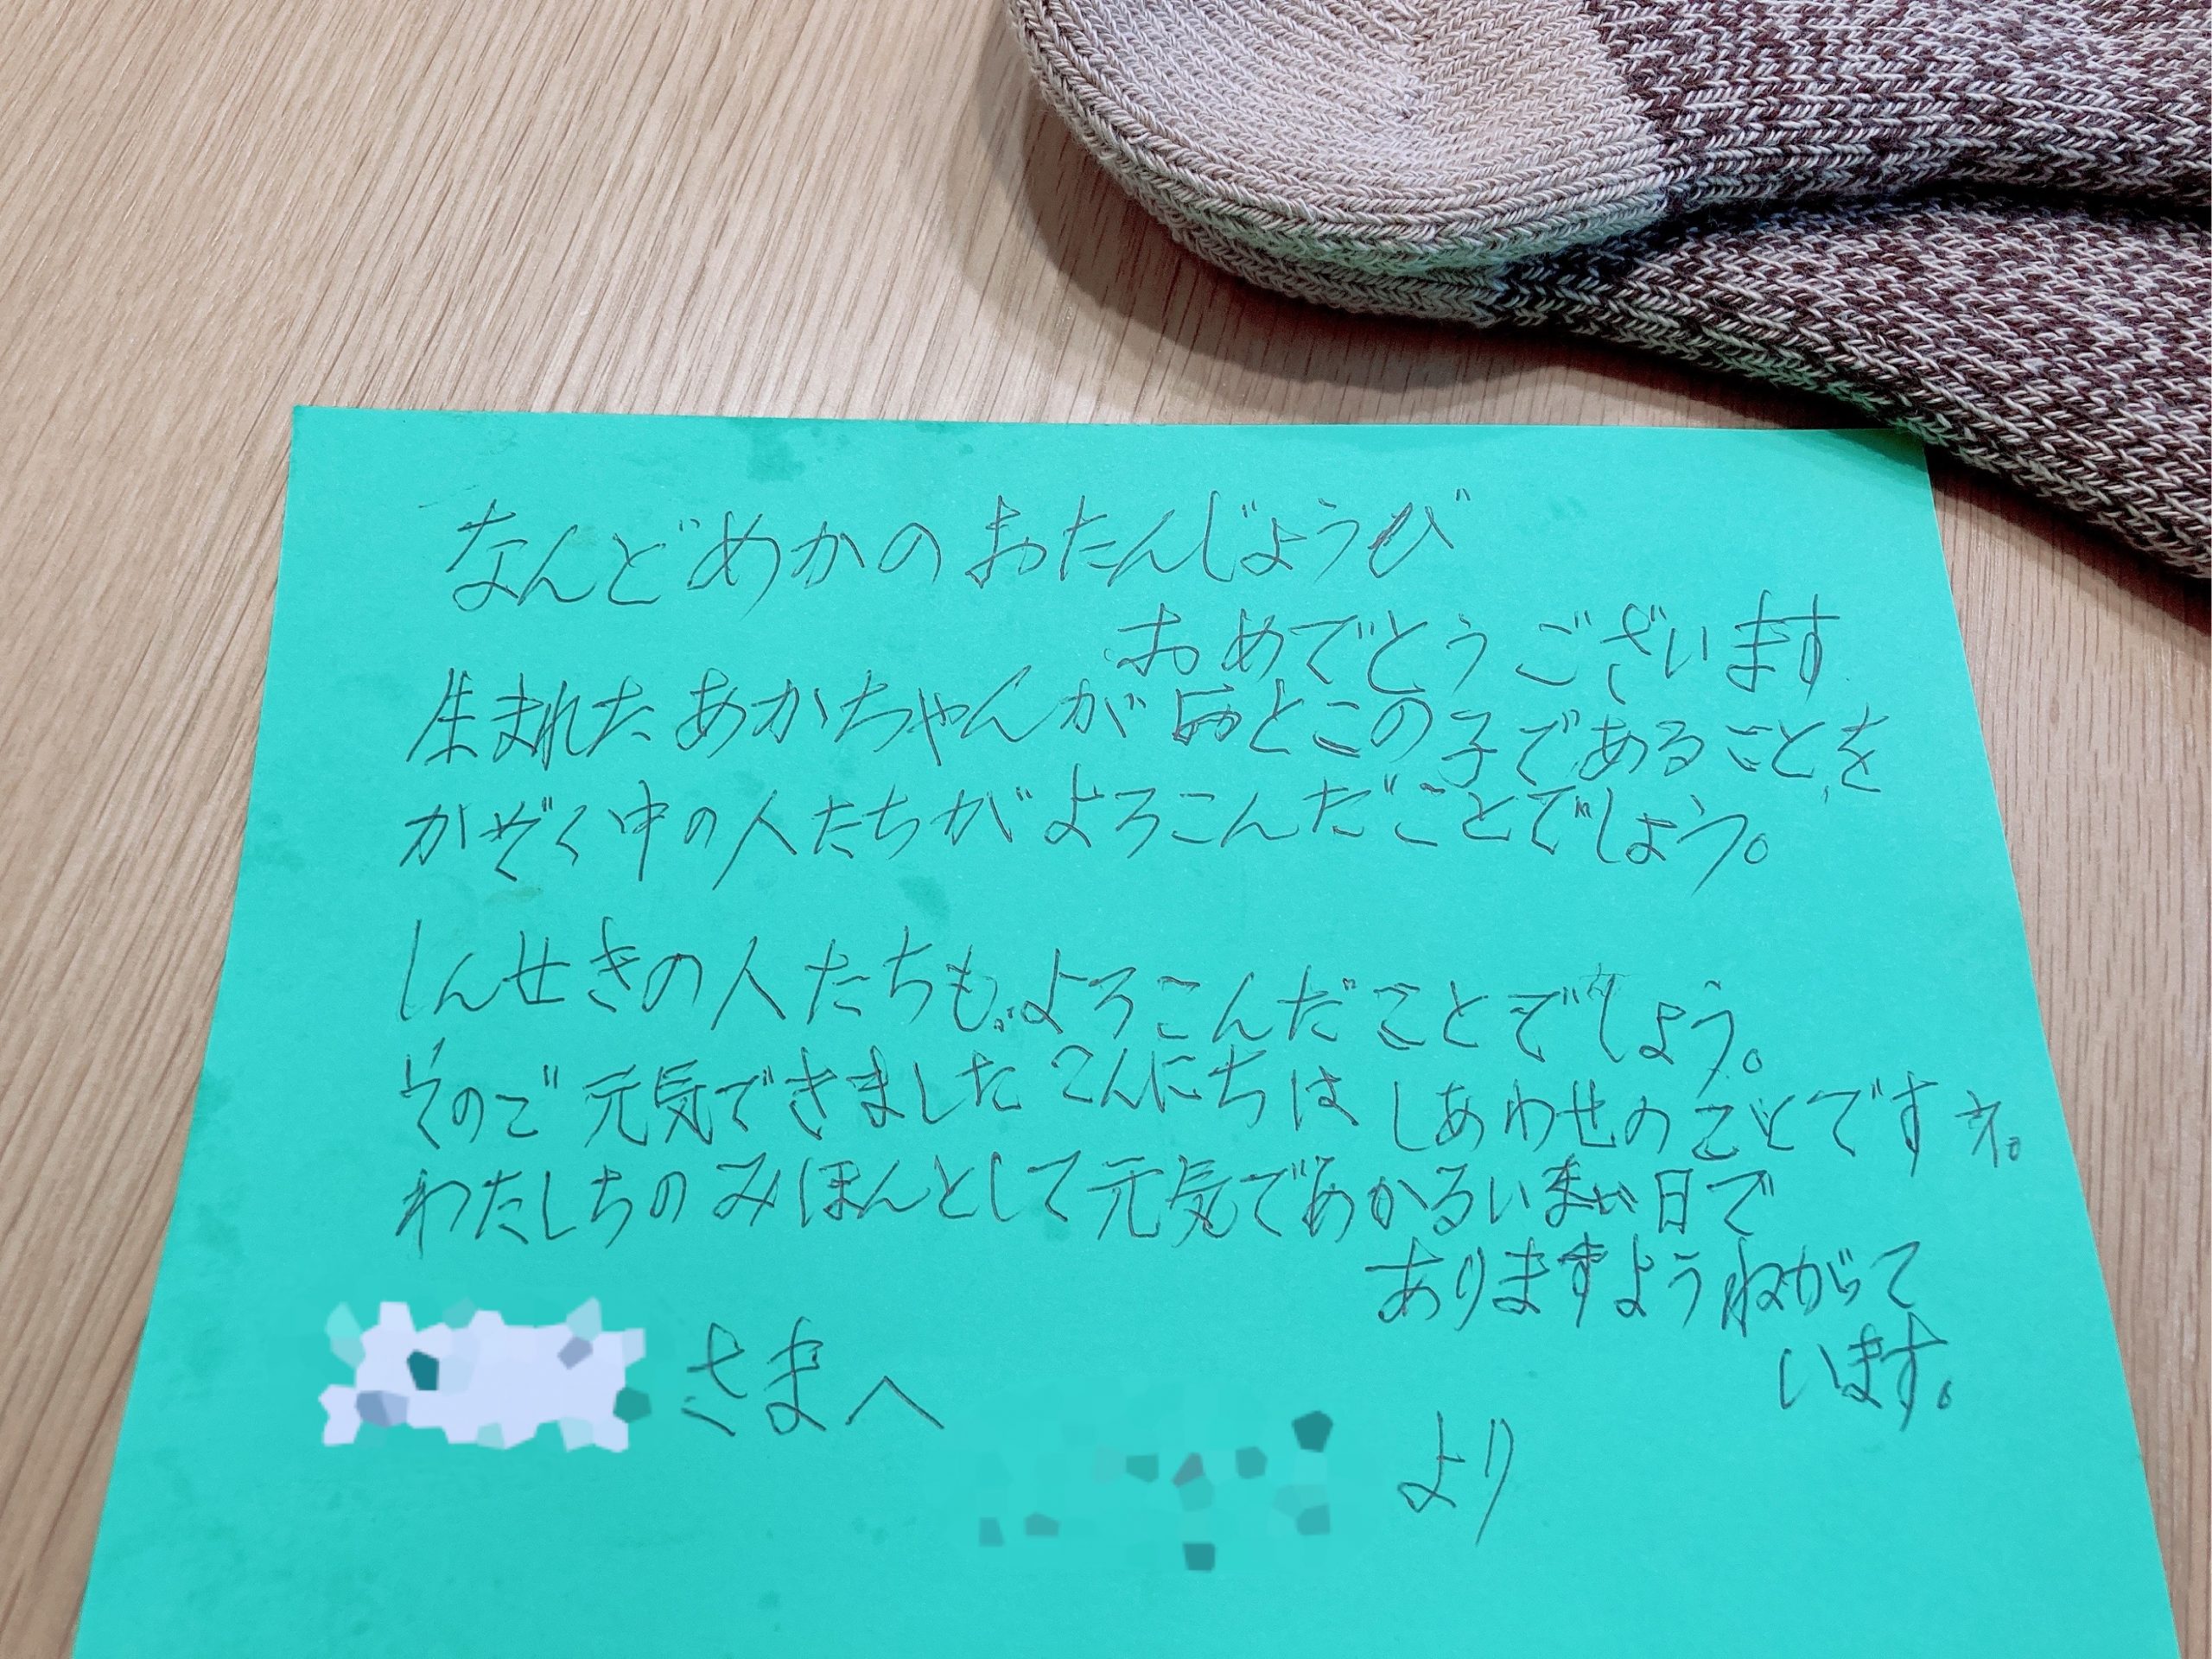 なんどめかのおたんじょうび
おめでとうございます
生まれたあかちゃんがおとこの子であることを
かぞく中の人たちがよろこんだことでしょう。
しんせきの人たちもよろこんだことでしょう。
そのご元気できましたこんにちはしあわせのことですネ。
わたしちのみほんとして元気であかるいまい日で
ありますようねがって
います。
さまへ
より